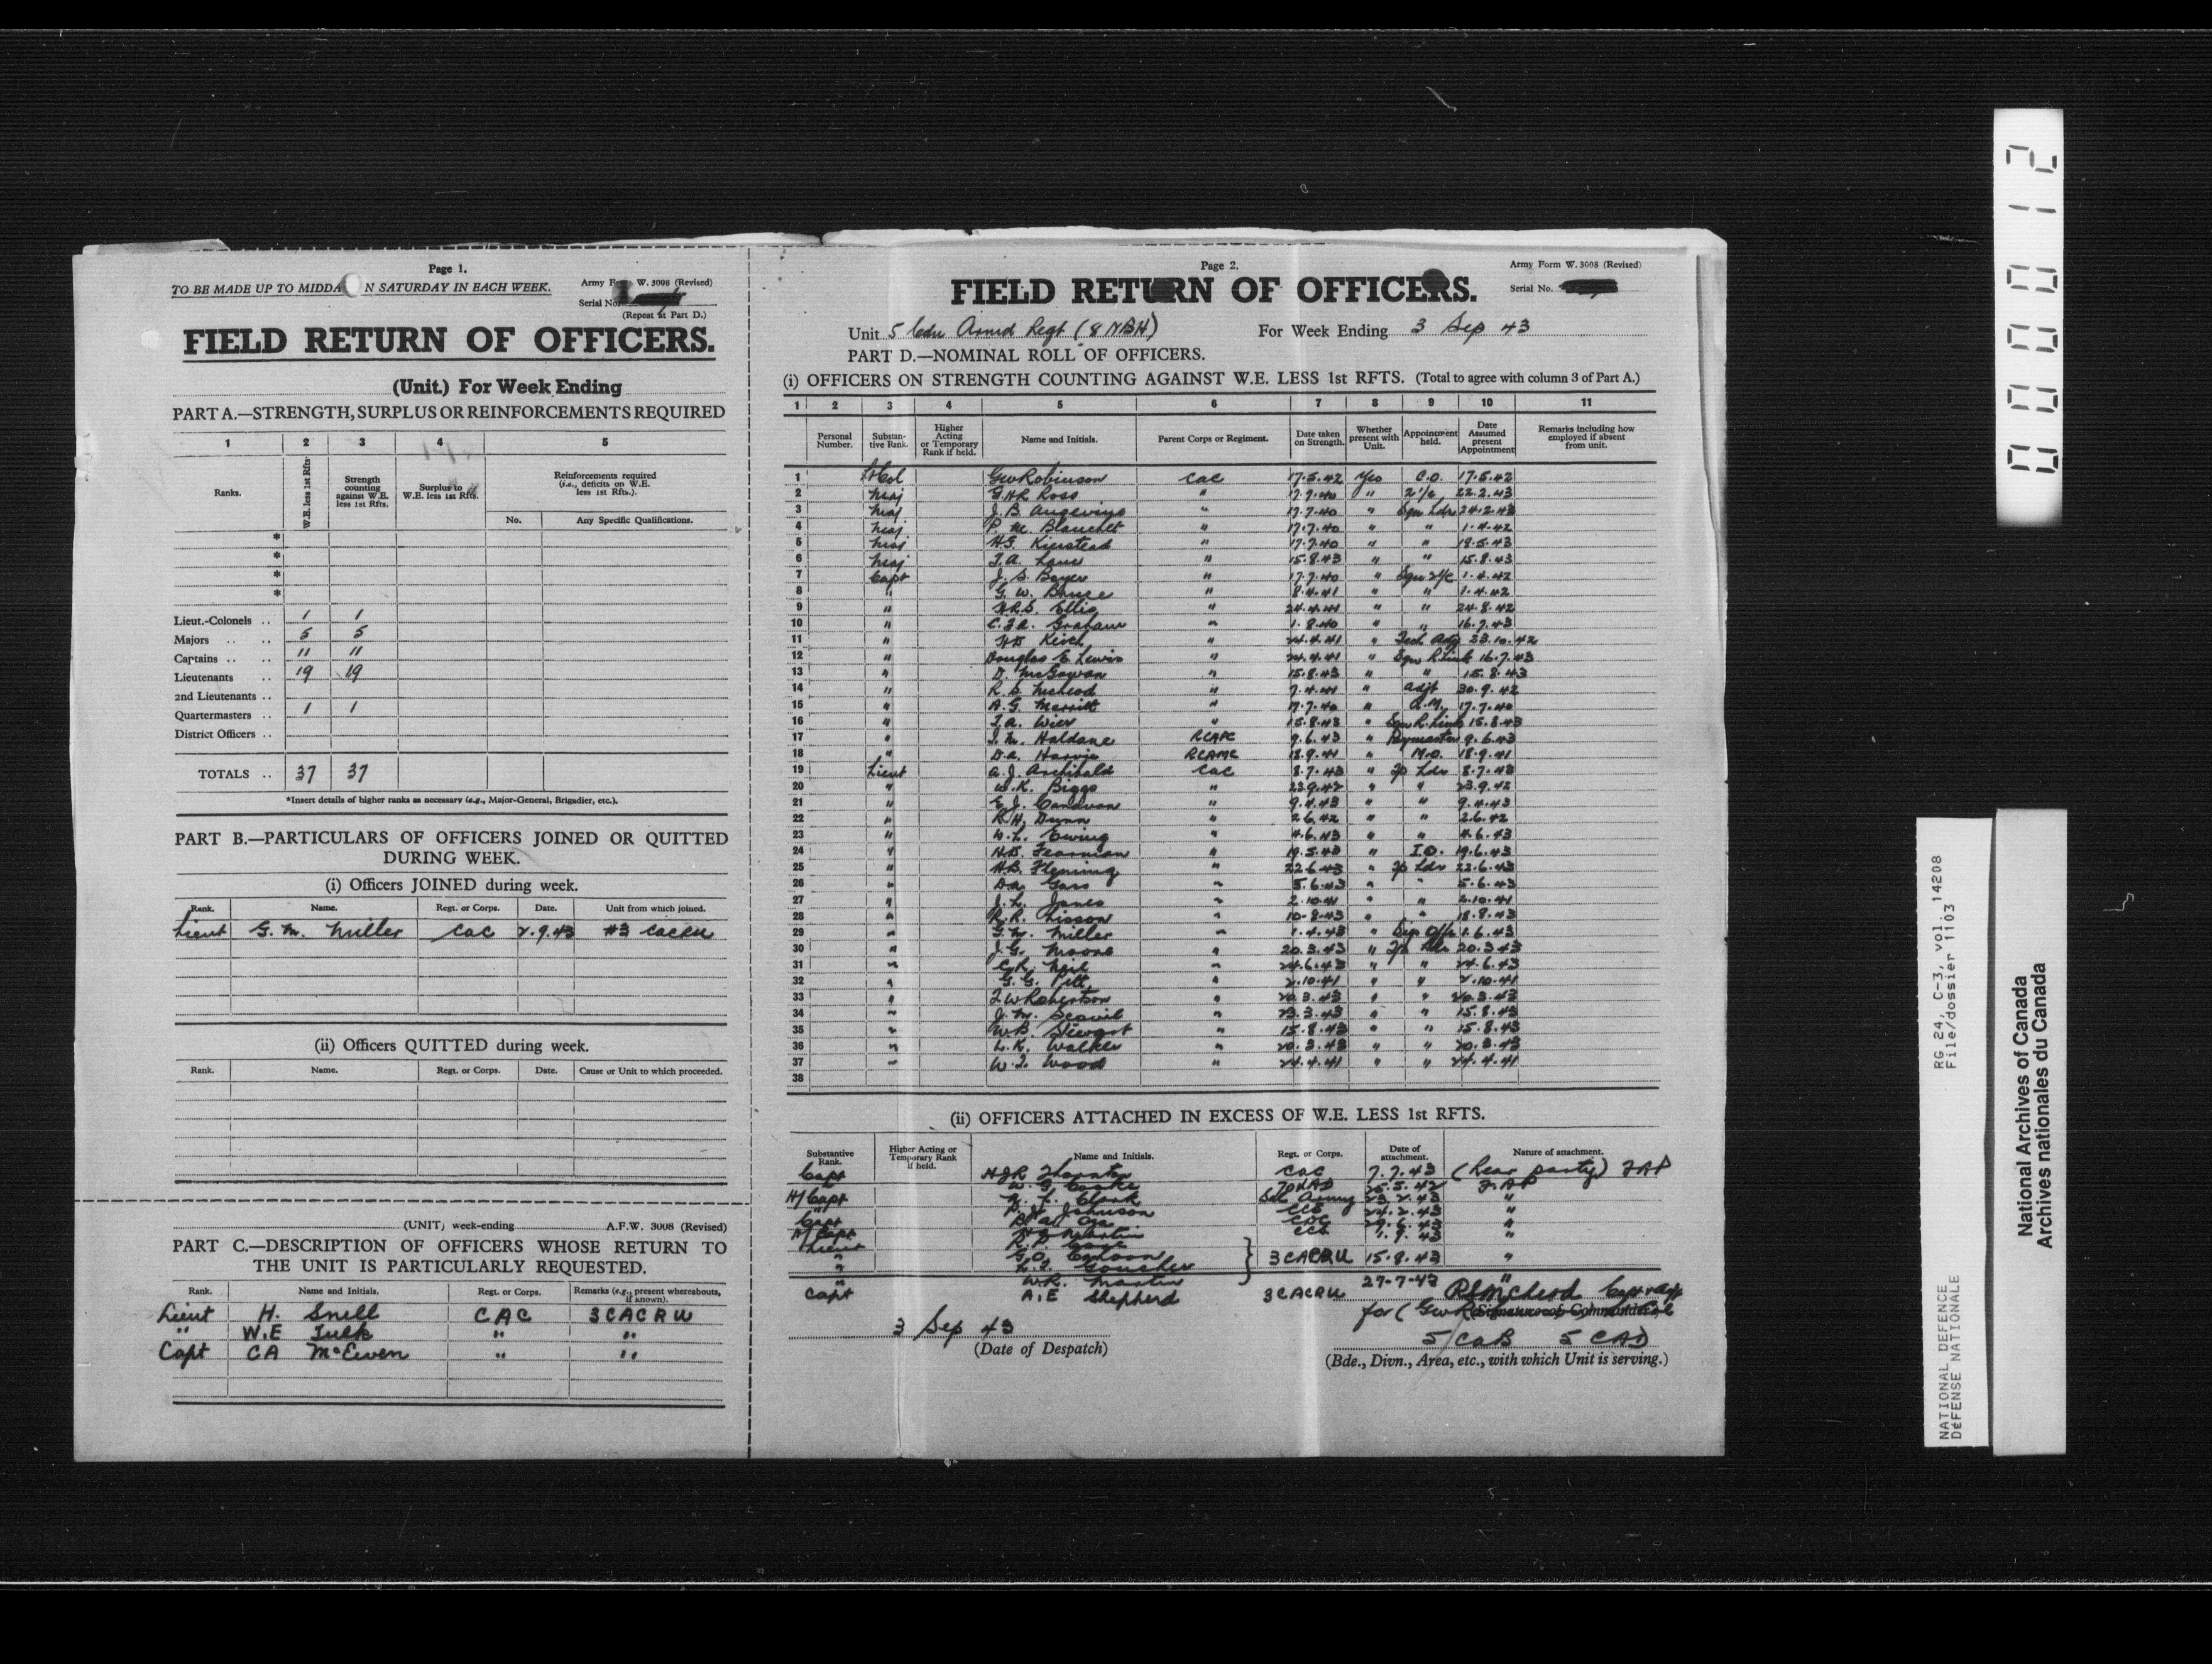 Page 1.
TO BE MADE UP TO MIDDA N SATURDAY IN EACH WEEK.
Army F W. 3008 (Revised)
Serial No.
(Repeat at Part D.)
FIELD RETURN OF OFFICERS.
(Unit.) For Week Ending
PART A.—STRENGTH, SURPLUS OR REINFORCEMENTS REQUIRED
1 2 3 4 5
Ranks. W.E. less 1st Rfts. Strength counting against W.E. less 1st Rfts. Surplus to W.E. less 1st Rfts. Reinforcements required (i.e., deficits on W.E. less 1st Rfts.).
No. Any Specific Qualifications.
*
*
*
*
Lieut.-Colonels .. 1 1
Majors .. .. 5 5
Captains .. .. 11 11
Lieutenants .. 19 19
2nd Lieutenants ..
Quartermasters .. 1 1
District Officers ..
TOTALS .. 37 37
*Insert details of higher ranks as necessary (e.g., Major-General, Brigadier, etc.).
PART B.—PARTICULARS OF OFFICERS JOINED OR QUITTED
DURING WEEK.
(i) Officers JOINED during week.
Rank. Name. Regt. or Corps. Date. Unit from which joined.
Lieut G. M. Miller CAC 2.9.43 #3 CACRU
(ii) Officers QUITTED during week.
Rank. Name. Regt. or Corps. Date. Cause or Unit to which proceeded.
(UNIT) week-ending A.F.W. 3008 (Revised)
PART C.—DESCRIPTION OF OFFICERS WHOSE RETURN TO
THE UNIT IS PARTICULARLY REQUESTED.
Rank. Name and Initials. Regt. or Corps. Remarks (e.g., present whereabouts, if known).
Lieut H. Snell CAC 3 CACRU
" W.E Tulk " "
Capt CA McEwen " "
Page 2.
Army Form W. 3008 (Revised)
Serial No.
FIELD RETURN OF OFFICERS.
Unit 5 Cdn Armd Regt (8 NBH) For Week Ending 3 Sep 43
PART D.—NOMINAL ROLL OF OFFICERS.
(i) OFFICERS ON STRENGTH COUNTING AGAINST W.E. LESS 1st RFTS. (Total to agree with column 3 of Part A.)
1 2 3 4 5 6 7 8 9 10 11
Personal Number. Substantive Rank. Higher Acting or Temporary Rank if held. Name and Initials. Parent Corps or Regiment. Date taken on Strength. Whether present with Unit. Appointment held. Date Assumed present Appointment Remarks including how employed if absent from unit.
1 Lt Col GW Robinson CAC 17.5.42 Yes C.O. 17.5.42
2 Maj G.H.R Ross " 17.7.40 " 2 i/c 22.2.43
3 Maj J.B Angevine " 17.7.40 " Sqn Ldr 24.2.43
4 Maj P. M. Blanchet " 17.7.40 " " 1.4.42
5 Maj H.G. Kierstead " 17.7.40 " " 19.5.43
6 Maj T.A. Lane " 15.8.43 " " 15.8.43
7 Capt J. S. Boyer " 17.7.40 " Sqn 2i/c 1.4.42
8 " G. W. Bruce " 8.4.41 " " 1.4.42
9 " H.R.S. Ellis " 24.4.41 " " 24.8.42
10 " C.F.A. Graham " 1.8.40 " " 16.7.43
11 " H.D Keirk " 24.4.41 " Tech Adj 23.10.42
12 " Douglas E. Lewis " 24.4.41 " Sqn R.Link 16.7.43
13 " D. McGowan " 15.8.43 " " 15.8.43
14 " R. S. McLeod " 7.4.41 " Adjt 30.9.42
15 " A.G. Merritt " 17.7.40 " Q.M. 17.7.40
16 " T.A. Wier " 15.8.43 " Sqn R.Link 15.8.43
17 " I. M. Haldane RCAPC 9.6.43 " Paymaster 9.6.43
18 " D.A. Harvie RCAMC 18.9.41 " M.O. 18.9.41
19 Lieut A.J. Archibald CAC 8.7.43 " Tp Ldr 8.7.43
20 " W.K. Biggs " 23.9.42 " " 23.9.42
21 " E. J. Canavan " 9.4.43 " " 9.4.43
22 " R.H. Dunn " 2.6.42 " " 2.6.42
23 " W.L. Ewing " 4.6.43 " " 4.6.43
24 " H.D. Fearman " 19.5.43 " I.O. 19.6.43
25 " H.B. Fleming " 22.6.43 " Tp Ldr 22.6.43
26 " D.A. Gass " 5.6.43 " " 5.6.43
27 " J. L. Jones " 2.10.41 " " 2.10.41
28 " R.R. Lisson " 10-8-43 " " 18.8.43
29 " G.M. Miller " 1.4.43 " Sig Offr 1.6.43
30 " J.G. Moore " 20.3.43 " Tp Ldr 20.3.43
31 " C.R. Neil " 24.6.43 " " 24.6.43
32 " G.G. Pitt " 2.10.41 " " 2.10.41
33 " F.W Robertson " 20.3.43 " " 20.3.43
34 " J. M. Scovil " 23.3.43 " " 15.8.43
35 " W.B. Stewart " 15.8.43 " " 15.8.43
36 " L.K. Walker " 20.3.43 " " 20.3.43
37 " W.F. Wood " 24.4.41 " " 24.4.41
38
(ii) OFFICERS ATTACHED IN EXCESS OF W.E. LESS 1st RFTS.
Substantive Rank. Higher Acting or Temporary Rank if held. Name and Initials. Regt. or Corps. Date of attachment. Nature of attachment.
Capt H.J.R Thornton CAC 7.7.43 (Rear party)
" W. G. Cooke 25.5.42
H/Capt N. F. Clark Sal Army 23.2.43 "
" Johnson 24.2.43 "
Capt CDC 29.6.43 "
H/Capt Martin 1.9.43 "
Lieut R.P.
" G.O. Cahoon 3 CACRU 15.8.43 "
" L.F. Goucher
" W.R. Martin
Capt A.E Shepherd 3 CACRU 27-7-43 "
RS McLeod Capt
for (GW R
(Signature of Commander)
3 Sep 43
(Date of Despatch)
5 CAB 5 CAD
(Bde., Divn., Area, etc., with which Unit is serving.)
000012
RG 24, C-3, vol. 14208
File/dossier 1103
NATIONAL DEFENCE
DÉFENSE NATIONALE
National Archives of Canada
Archives nationales du Canada